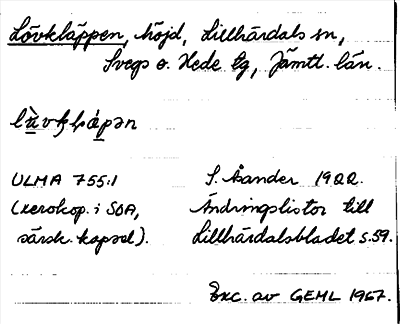 Lövkläppen, höjd, Lillhärdals sn,
Svegs o. Hede tg, Jämtl. län.
ULMA 755:1
S. Åander 1922.
(xerokop. i SOA,
Ändringslistor till
särsk. kapsel).
Lillhärdalsbladet s.59.
Exc. av GEHL 1967.